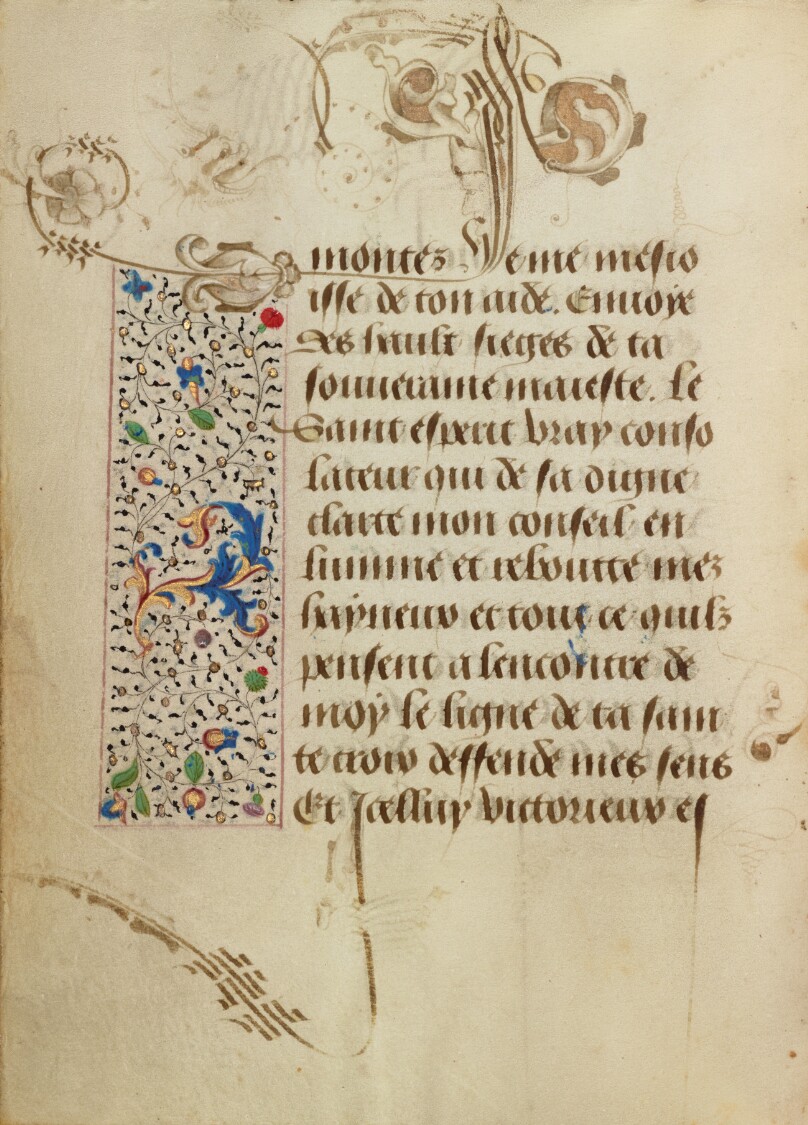 montez Je me mesio
isse de ton aide. Envoye
des hault sieges de ta
souveraine maieste. le
Saint esperit vray conso
lateur qui de sa digne
clarte mon conseil en
lumine et reboutte mez
hayneux et tout ce quilz
pensent a lencontre de
moy le signe de ta sain
te croix deffende mes sens
Et Jcelluy victorieux es